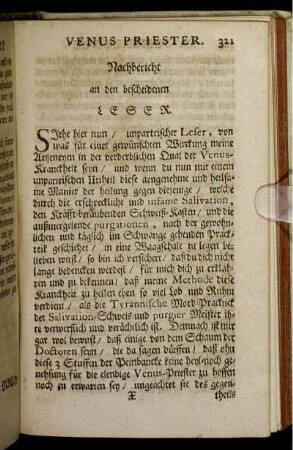 VENUS PRIESTER. 321
Nachbericht
an den bescheidenen
LESER.
Siehe hier nun / unparteischer Leser, von
was für einer gewünschten Wirckung meine
Artzeneyen in der verderblichen Qual der Venus-
Kranckheit seyn / und wenn du nun mit einem
unparteischen Urtheil diese angenehme und heilsa-
me Manier der heilung gegen diejenige / welche
durch die erschreckliche und infame Salivation,
den Kräfft-beraubenden Schweiß-Kasten / und die
außmergelende purgationen, nach der gewohn-
lichen und täglich im Schwange gehenden Prack-
teik geschiehet / in eine Waagschale zu legen be-
lieben wirst / so bin ich versichert / daß du dich nicht
lange bedencken werdest / für mich dich zu erklah-
ren und zu bekennen / daß meine Methode diese
Kranckheit zu heilen eben so viel Lob und Ruhm
verdient / als die Tyrannische Mord-Practick
der Salivation-Schweis-und purgier Meister ih-
re verwerflich und verächtlich ist. Demnach ist mir
gar wol bewust / daß einige von dem Schaum der
Doctoren seyn / die da sagen dürffen / daß ohn
diese 3 Stuffen der Peinbancke keine
nehsung für die elendige Venus-Priester zu hoffen
noch zu erwarten sey / ungeachtet sie des gegen-
X theils